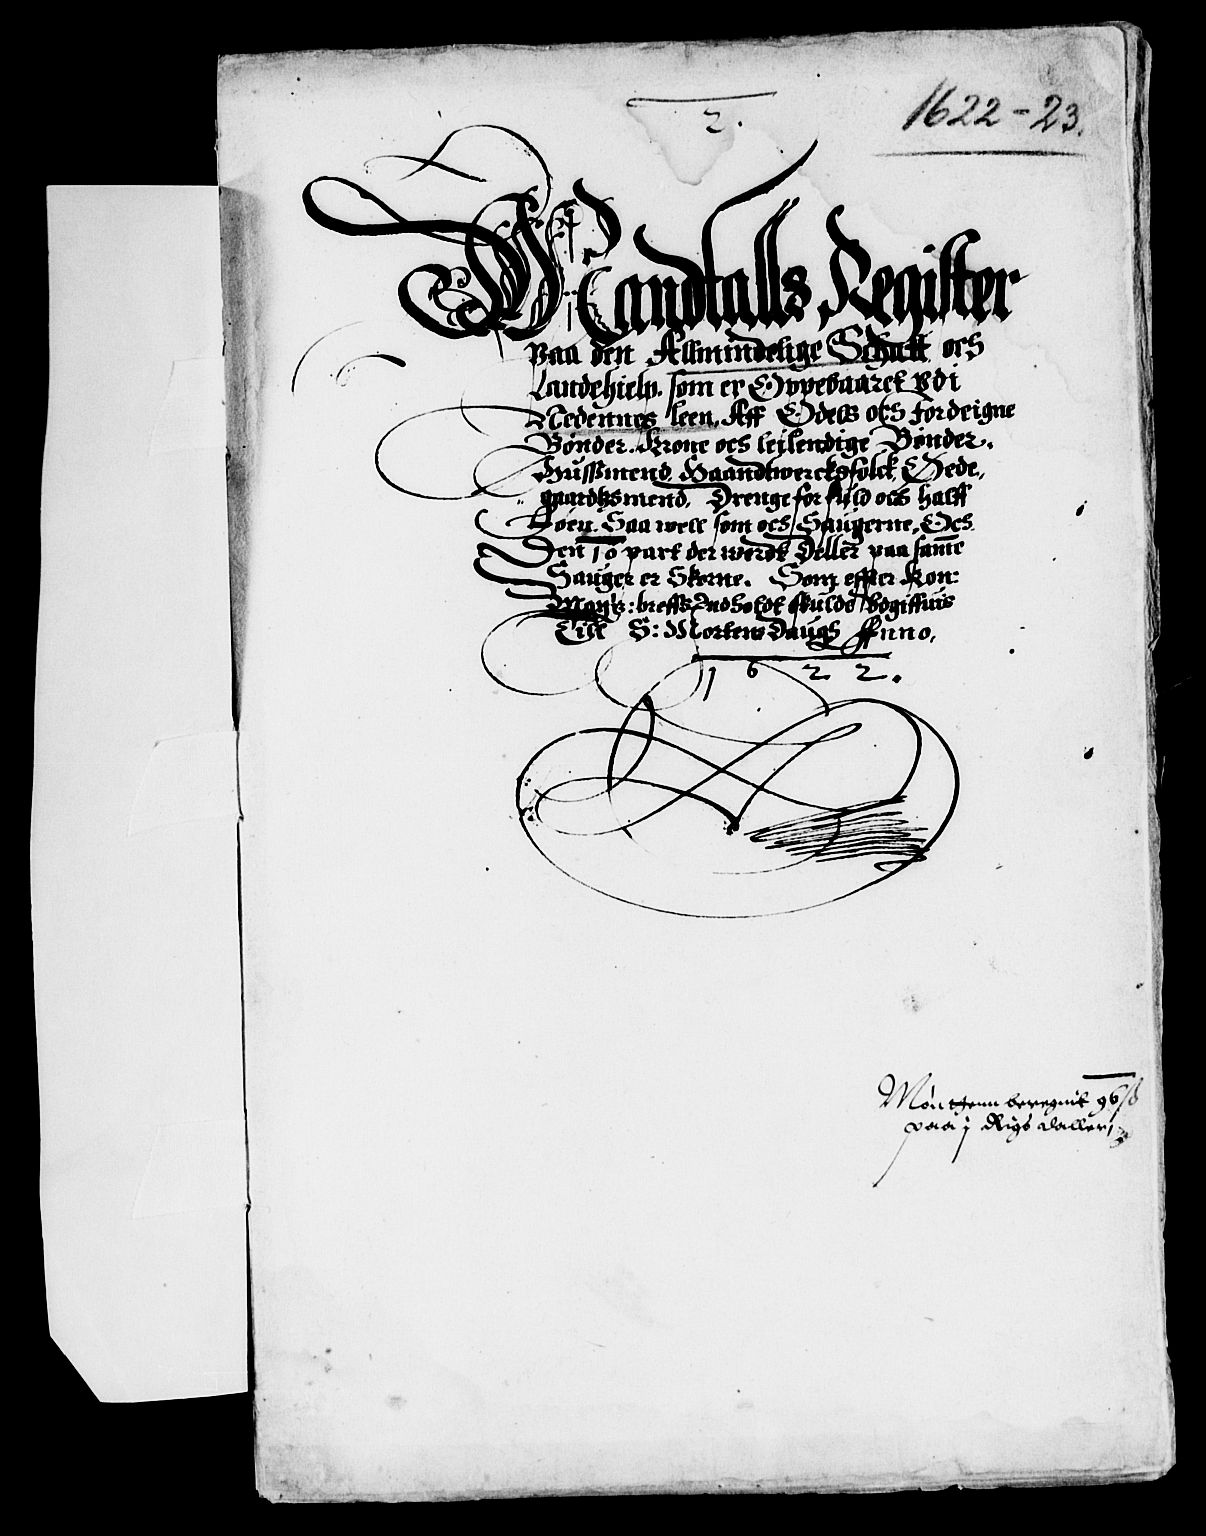 2.
1622-23.
Mandtalls Register
paa den Allmindelige Schatt och
Landehielp. som er Oppebaaret Vdi
Nedennes leen. Aff Odels och fordeigne
Bønder. Krone och leilendige Bønder.
Hussmend. Haandtwercksfolck, Øede,
gaardtzmend. Drenge for fuld och halff
Løen. Saa well som och Saugerne. Och
Den 10 part der werdt Deller paa same
Sauger er Skorne. Som effter Kon:
May's: breffs Indholdt skulde Vdgiffuis
Till S: Mortens Daugs Anno,
1622.
Møntzenn beregnit 96 ß
paa j Rigs daller,